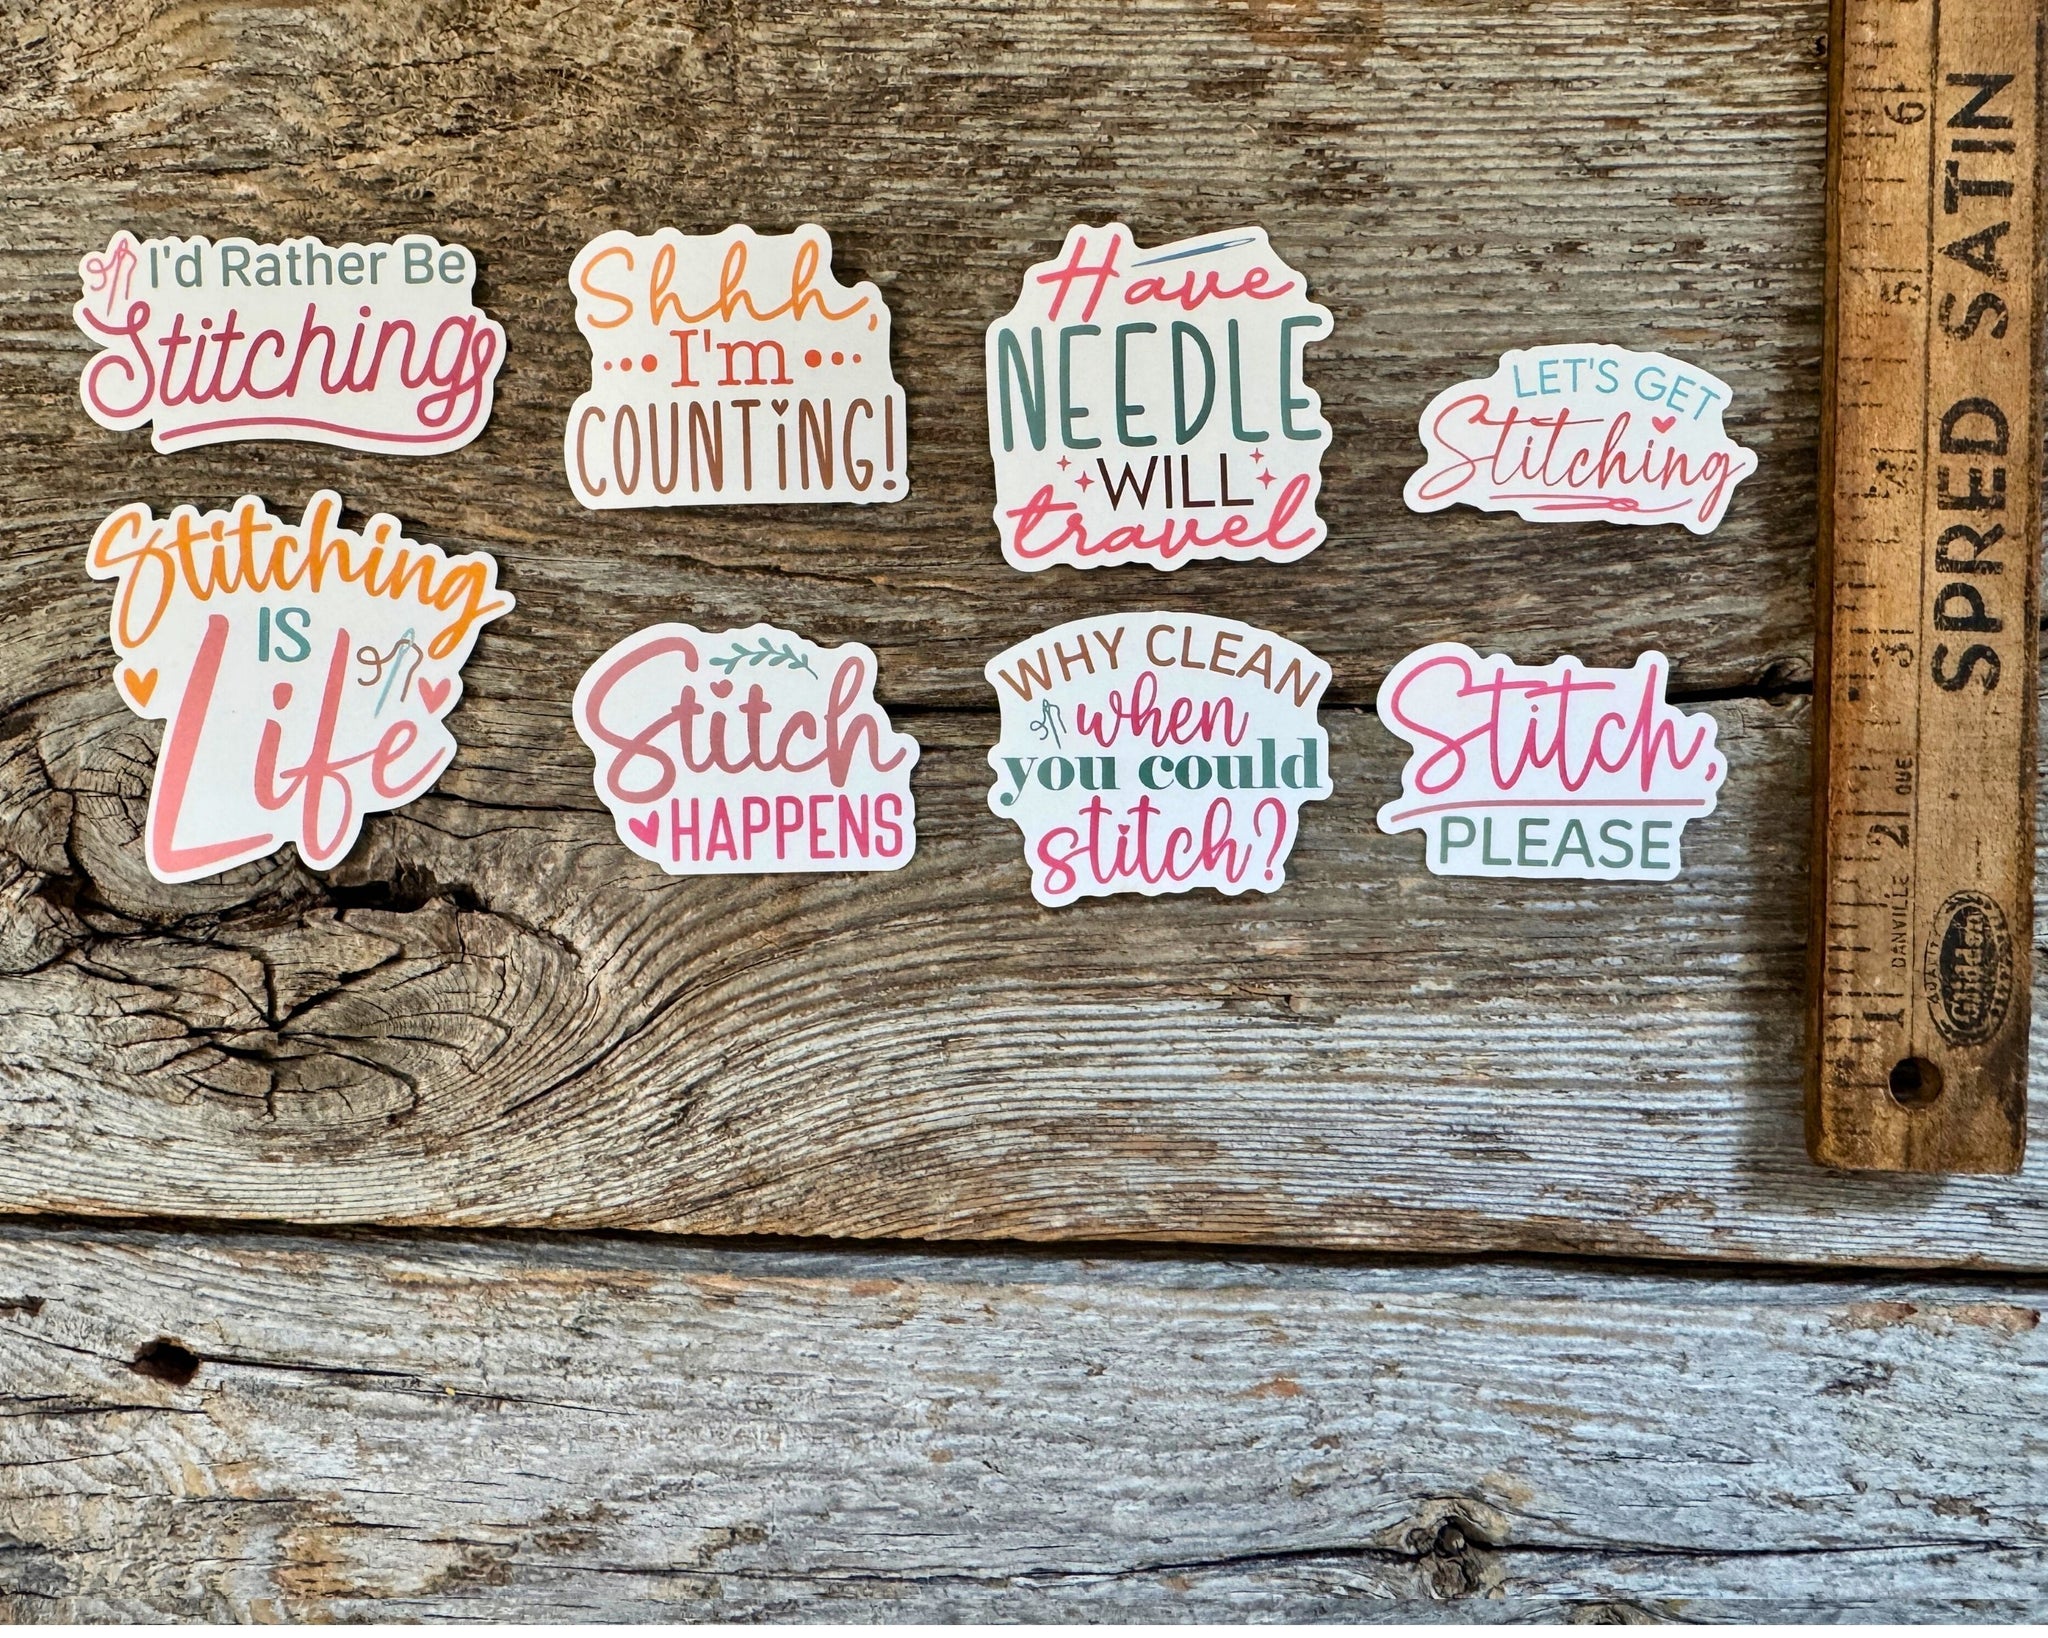 I'd Rather Be
Stitching
Shhh,
I'm
COUNTiNG!
Have
NEEDLE
WILL
travel
LET'S GET
Stitching
Stitching
IS
Life
Stitch
HAPPENS
WHY CLEAN
when
you could
stitch?
Stitch,
PLEASE
SPRED SATIN
6
5
3
2
1
DANVILLE
QUE